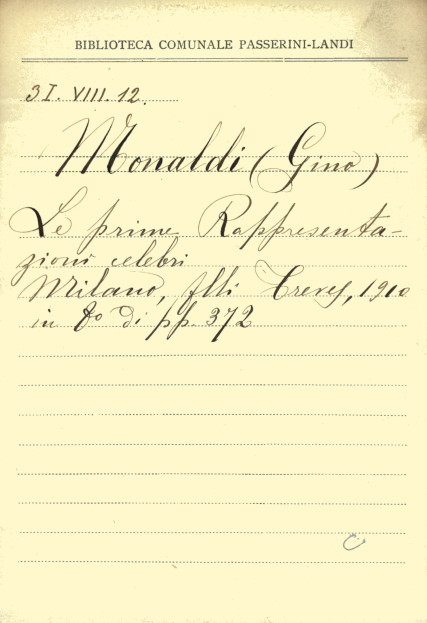 BIBLIOTECA COMUNALE PASSERINI-LANDI
3I. VIII. 12.
Monaldi (Gino)
Le prime Rappresenta-
zioni celebri
Milano, flli Treves, 1910
in 8º di pp. 372